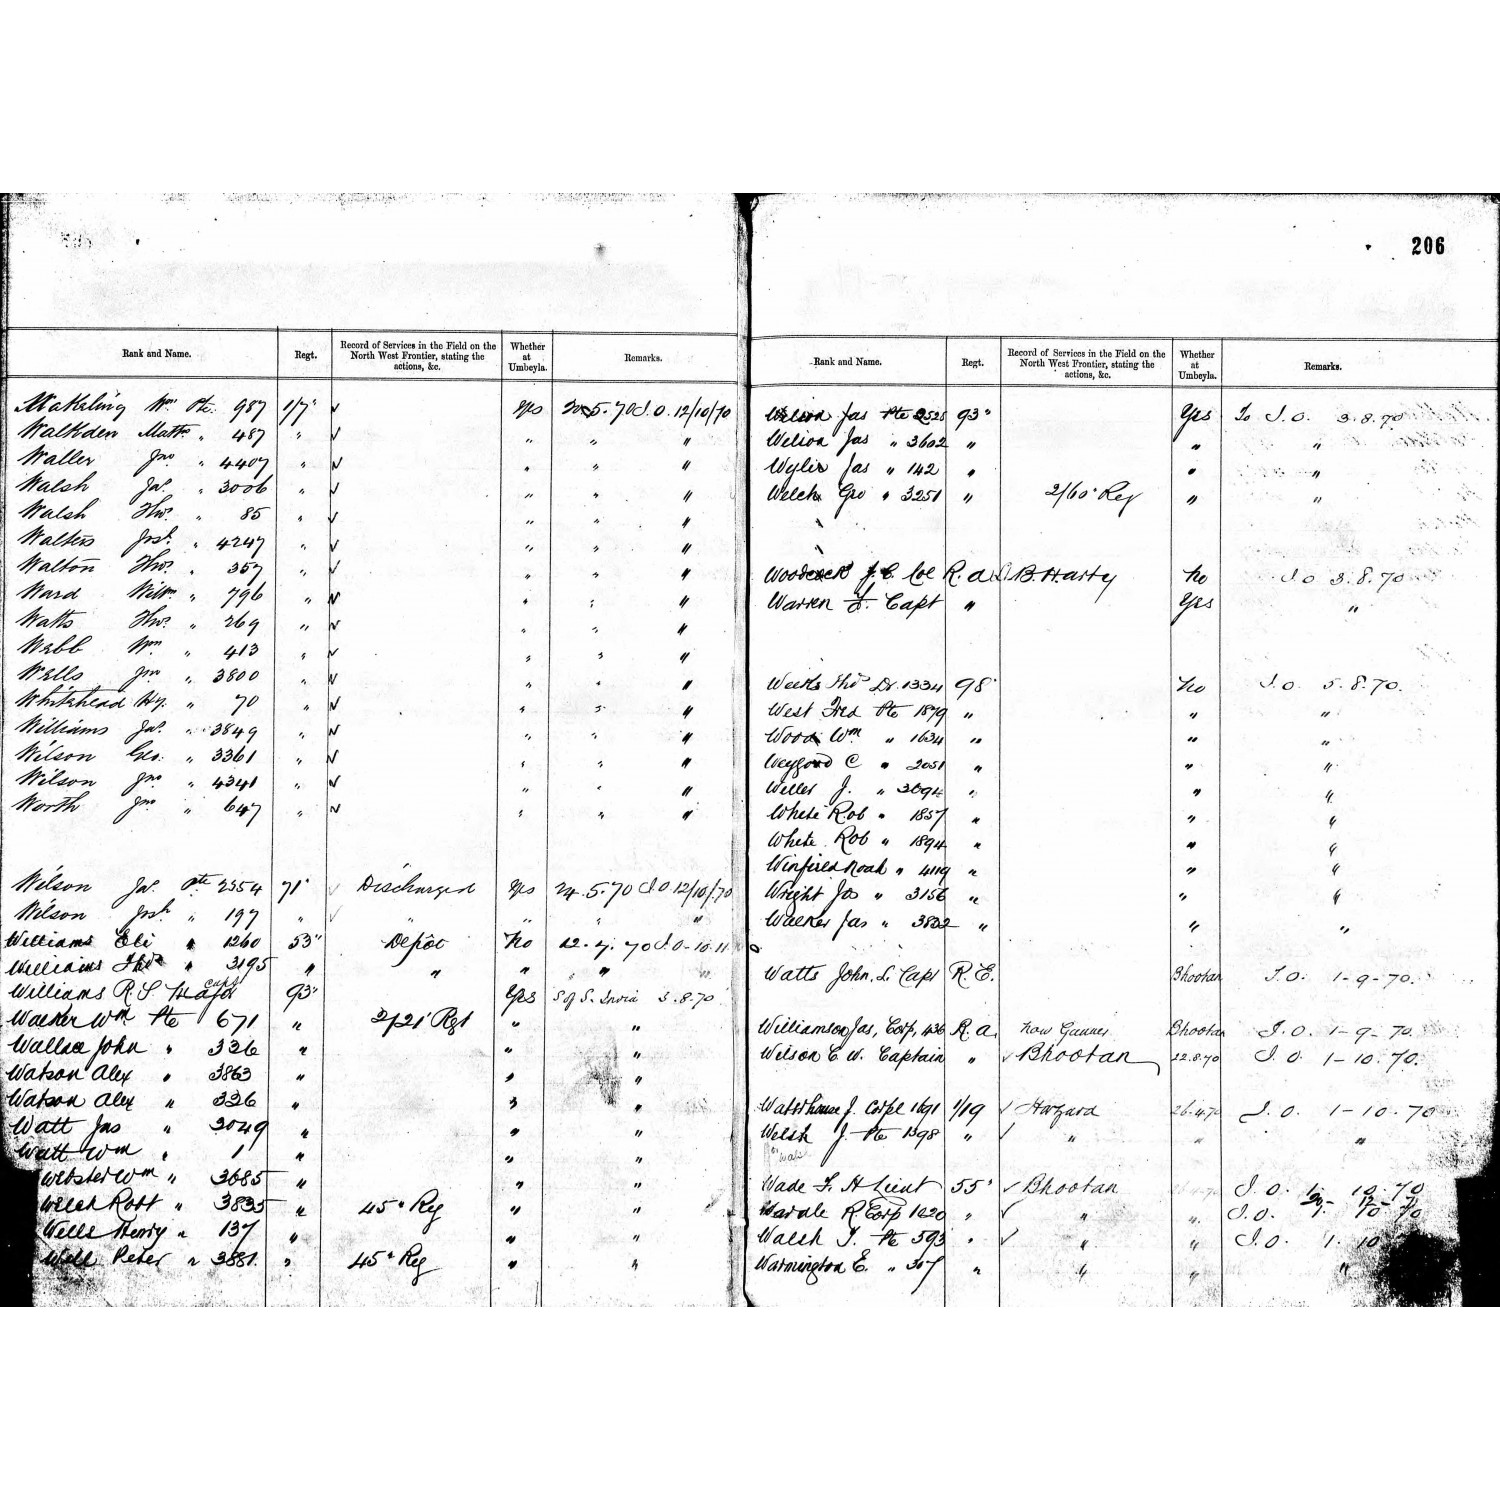 206
Rank and Name. Regt. Record of Services in the Field on the North West Frontier, stating the actions, &c. Whether at Umbeyla. Remarks.
Wakeling Wm Pte. 987 1/7" Yes 5.70 I.O. 12/10/70
Walkden Matt. " 487 " " " "
Waller Jno " 4407 " " " "
Walsh Jas. " 3006 " " " "
Walsh Thos. " 85 " " " "
Walters Josh. " 4247 " " " "
Walton Thos. " 357 " " " "
Ward Willm. " 796 " " " "
Watts Thos. " 269 " " " "
Webb Wm " 413 " " " "
Wells Jno " 3800 " " " "
Whitehead Hy. " 70 " " " "
Williams Jas. " 3849 " " " "
Wilson Geo. " 3361 " " " "
Wilson Jno " 4341 " " " "
Worth Jno " 647 " " " "
Wilson Jas. Pte 2354 71" Discharged Yes 24.5.70 I.O. 12/10/70
Wilson Josh " 197 " " " " "
Williams Eli " 1260 53" Depôt No 12.7.70 I.O-10.11
Williams Thos " 3195 " " " " "
Williams R.S. Major Capt 93" Yes S of S. India 3.8.70
Walker Wm Pte 671 " 2/21" Regt " "
Wallace John " 326 " " "
Watson Alex " 3863 " " "
Watson Alex " 326 " " "
Watt Jas " 3049 " " "
Watt Wm " 1 " " "
Webster Wm " 3685 " " "
Welch Robt " 3835 " 45" Reg " "
Wells Henry " 137 " " "
Well Peter " 3881. " 45" Reg " "
Rank and Name. Regt. Record of Services in the Field on the North West Frontier, stating the actions, &c. Whether at Umbeyla. Remarks.
Wilson Jas Pte 2528 93" Yes To I.O. 3.8.70
Wilson Jas " 3602 " " "
Wylie Jas " 142 " " "
Welch Geo " 3251 " 2/60" Reg " "
Woodcock J.C. Col R.a. B. Harty No I.O 3.8.70
Warren F. Capt " Yes "
Weeks Thos Dr. 1334 98" No I.O. 5.8.70.
West Fred Pte 1879 " " "
Wood Wm " 1634 " " "
Weyford C " 2051 " " "
Weller J. " 3094 " " "
White Rob " 1857 " " "
White Rob " 1894 " " "
Winfield Noah " 4119 " " "
Wright Jas " 3156 " " "
Walker Jas " 3832 " " "
Watts John. S. Capt R.E. Bhootan I.O. 1-9-70.
Williamson Jas, Corp, 436 R.a. now Gunner Bhootan I.O. 1-9-70.
Wilson C.W. Captain " Bhootan 22.8.70 I.O. 1-10.70.
Waterhouse J. Corpl 1691 1/19 Hazara 26.4.70 I.O. 1-10.70
Welsh J. Pte 1398 " " " "
Wade F.H Lieut 55" Bhootan I.O. 1. 10.70
Wardle R. Corp 1220 " " " I.O. 10-70
Walsh T. Pte 593 " " " I.O. 1.10
Warmington E. " 307 " " " "